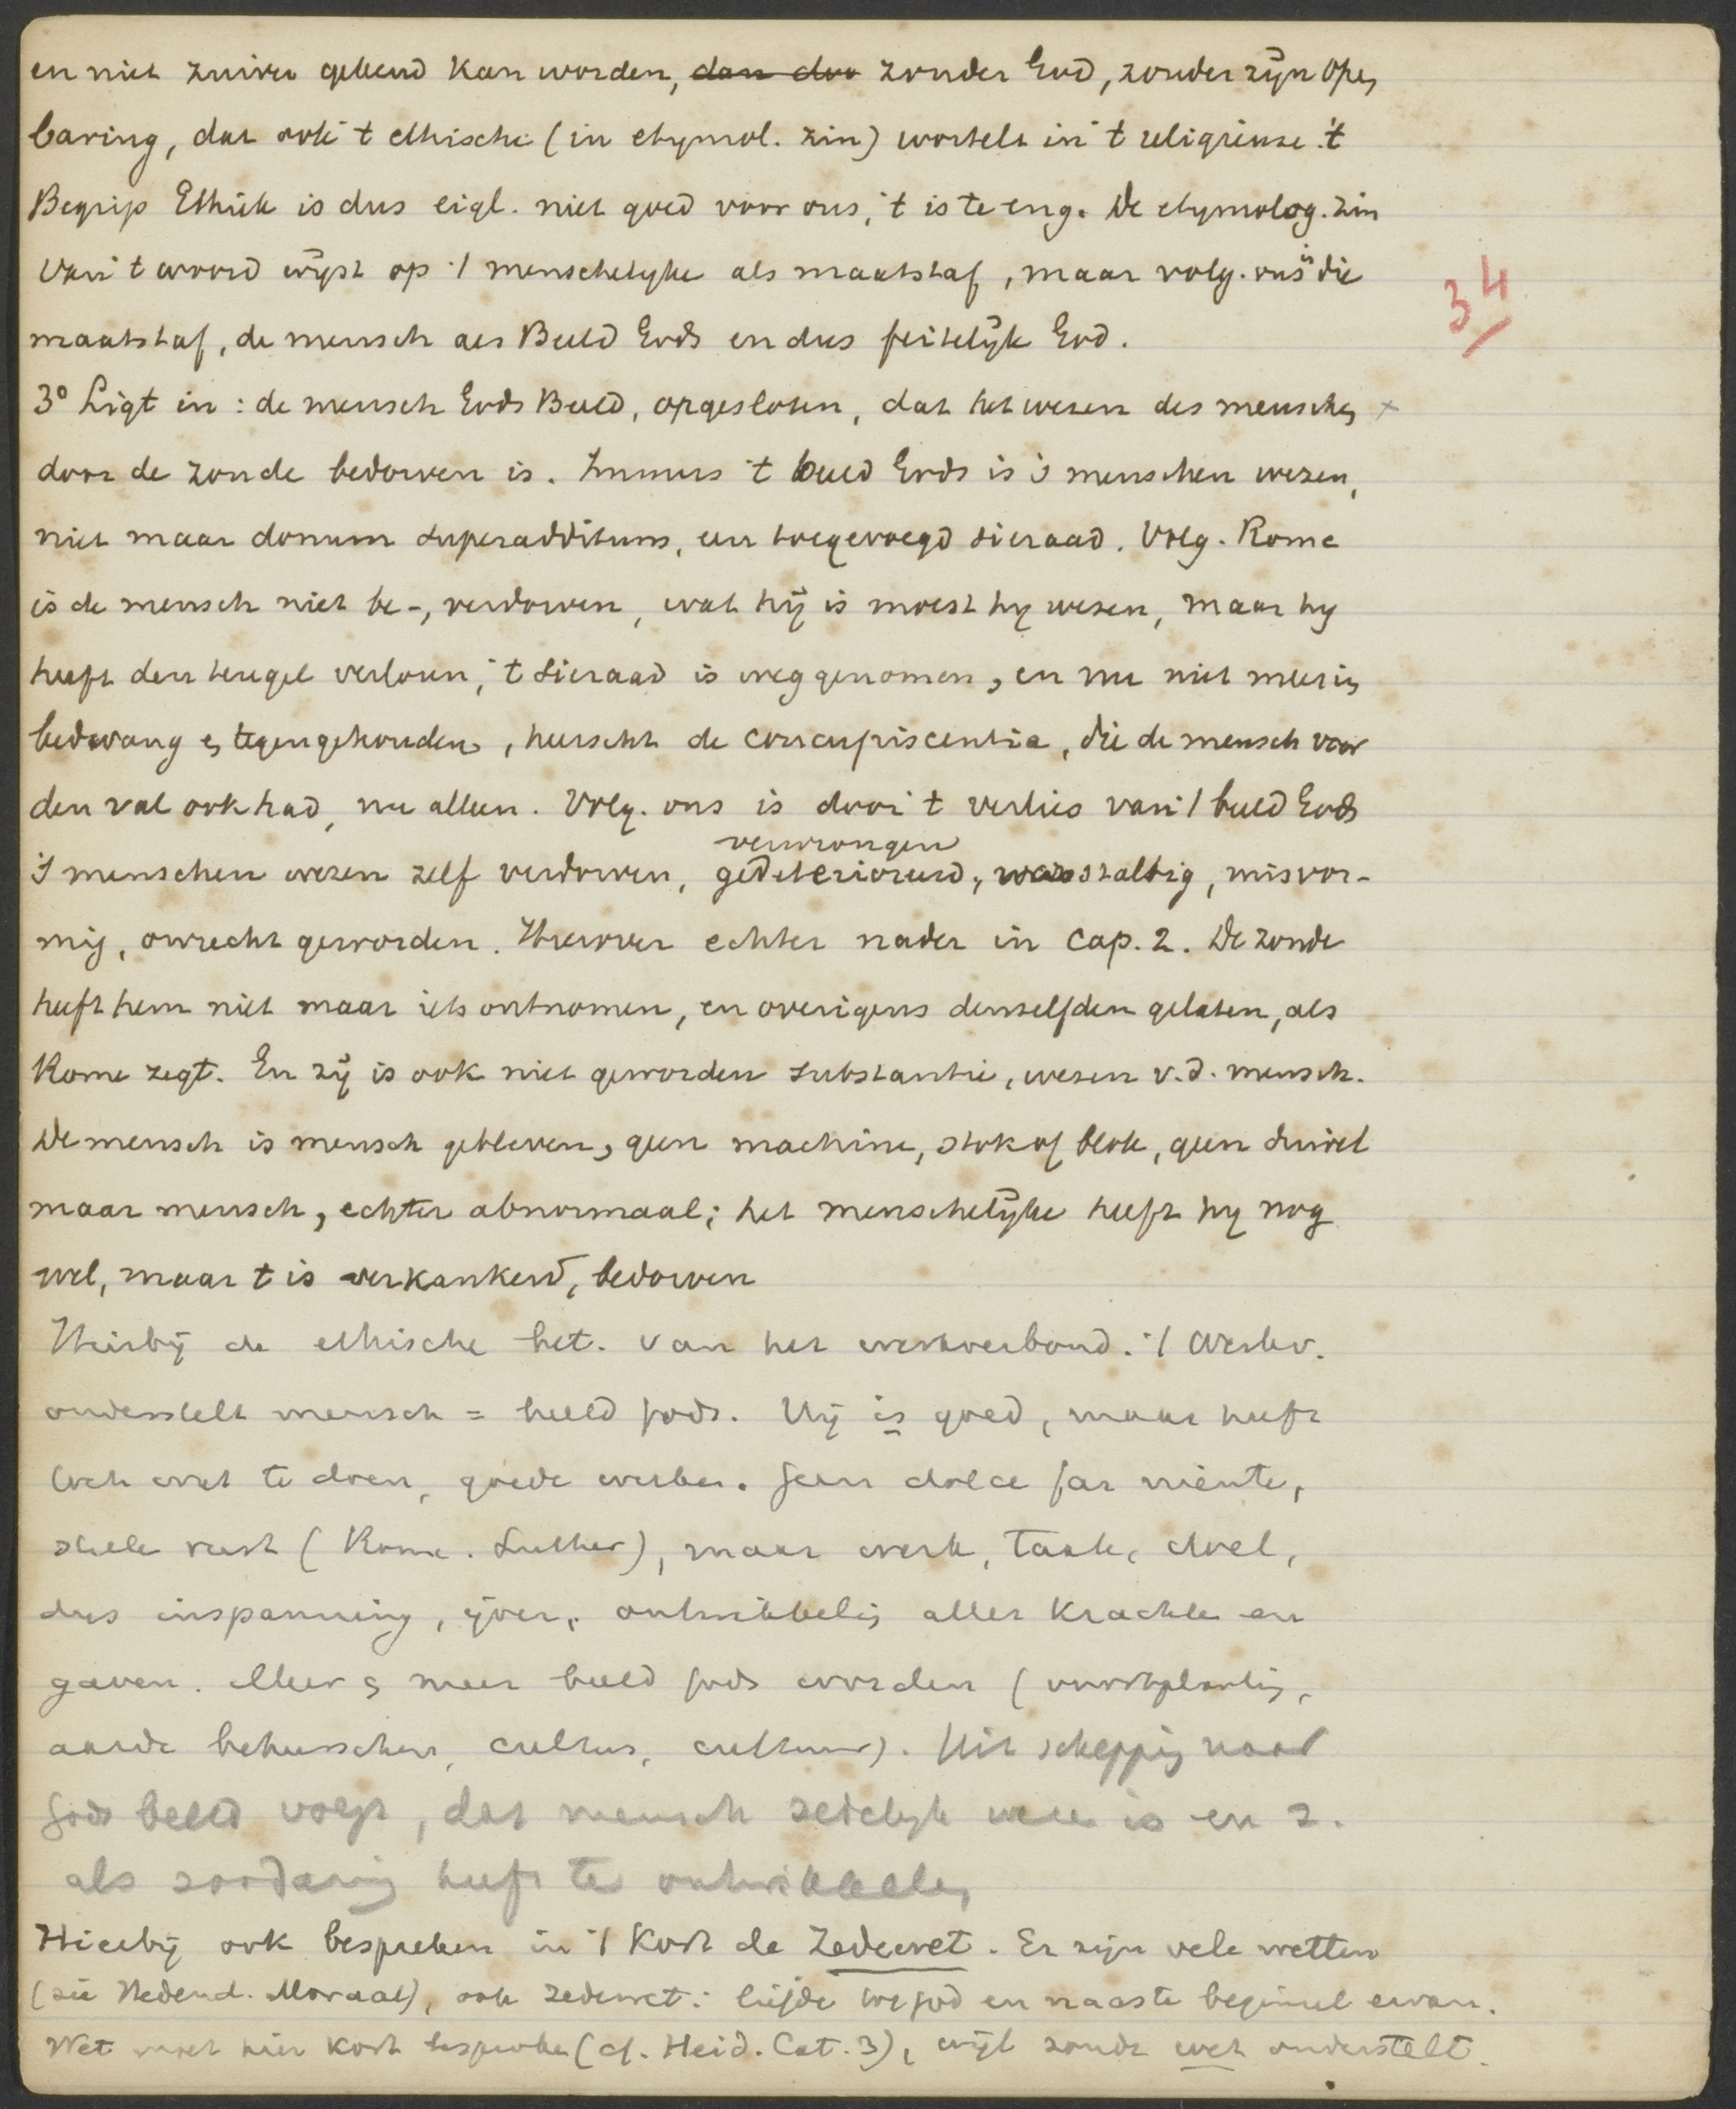 en niet zuiver gekend kan worden, dan doo zonder God, zonder zijn open
baring, dat ook 't ethische (in etymol. zin) wortelt in 't religieuze. 't
Begrip Ethiek is dus eigl. niet goed voor ons, 't is te eng. De etymolog. zin
van 't woord wijst op 't menschelijke als maatstaf, maar volg. ons is die
maatstaf, de mensch als Beeld Gods en dus feitelijk God.
34
3° Ligt in: de mensch Gods Beeld, opgesloten, dat het wezen des menschen x
door de zonde bedorven is. Immers 't beeld Gods is 's menschen wezen,
niet maar donum superadditum, een toegevoegd sieraad. Volg. Rome
is de mensch niet be-, verdorven, wat hij is moest hy wezen, maar hy
heeft den teugel verloren, 't sieraad is weggenomen, en nu niet meer in
bedwang en tegengehouden, heerscht de concupiscentia, die de mensch voor
den val ook had, nu alleen. Volg. ons is door 't verlies van 't beeld Gods
verwrongen
's menschen wezen zelf verdorven, gedeterioreerd, wanstaltig, misvor-
mig, onrecht geworden. Hierover echter nader in Cap. 2. De zonde
heeft hem niet maar iets ontnomen, en overigens denzelfden gelaten, als
Rome zegt. En zij is ook niet geworden substantie, wezen v.d. mensch.
De mensch is mensch gebleven, geen machine, stok of blok, geen duivel
maar mensch, echter abnormaal; het menschelijke heeft hy nog
wel, maar t is verkankerd, bedorven
Hierbij de ethische bet. van het werkverbond. 't Werkv.
onderstelt mensch = beeld Gods. Hij is goed, maar heeft
toch wat te doen, goede werken. Geen dolce far niente,
stille rust (Rome. Luther), maar werk, taak, doel,
dus inspanning, ijver, ontwikkeling aller krachten en
gaven. Meer en meer beeld Gods worden (voortplanting,
aarde beheerschen, cultus, cultuur). Uit schepping naar
Gods beeld volgt, dat mensch zedelijk wezen is en z.
als zoodanig heeft te ontwikkelen
Hierbij ook bespreken in 't kort de Zedewet. Er zijn vele wetten
(zie Nedend. Moraal), ook zedewet: liefde tot God en naaste beginsel ervan.
Wet moet hier kort besproken (cf. Heid. Cat. 3), wijl zonde wet onderstelt.